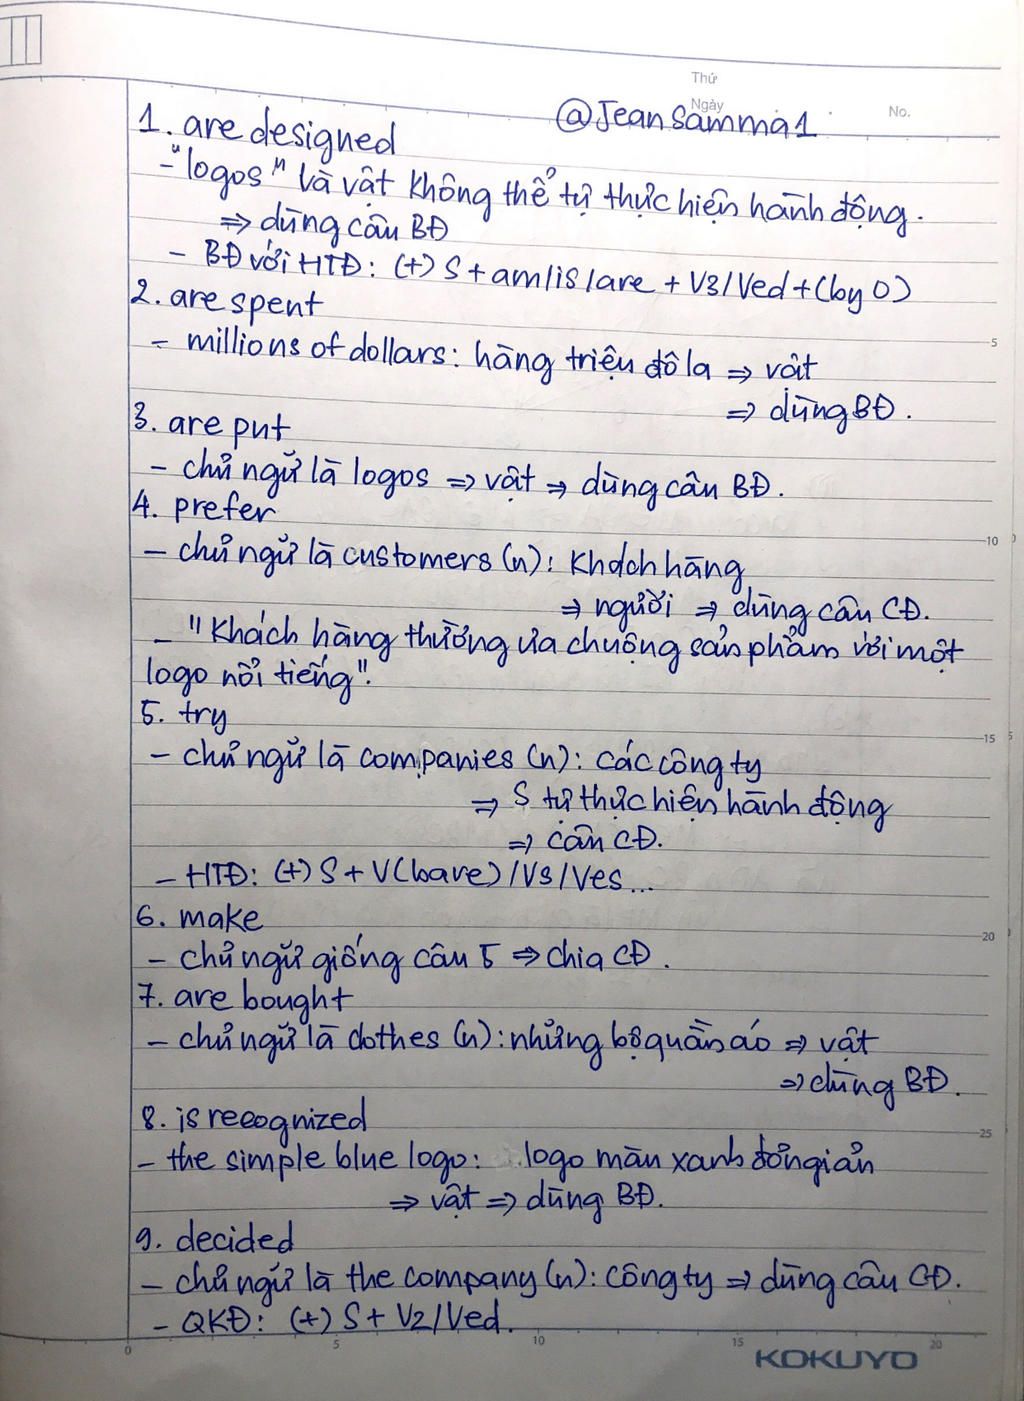 Thứ
Ngày
No.
@Jeansamma1
1. are designed
- "logos" là vật không thể tự thực hiện hành động.
⇒ dùng câu BĐ
- BĐ với HTĐ: (+) S + am/is/are + V3/Ved + (by O)
2. are spent
- millions of dollars: hàng triệu đô la ⇒ vật
⇒ dùng BĐ.
3. are put
- chủ ngữ là logos ⇒ vật ⇒ dùng câu BĐ.
4. prefer
- chủ ngữ là customers (n): khách hàng
⇒ người ⇒ dùng câu CĐ.
- "Khách hàng thường ưa chuộng sản phẩm với một
logo nổi tiếng".
5. try
- chủ ngữ là companies (n): các công ty
⇒ S tự thực hiện hành động
⇒ câu CĐ.
- HTĐ: (+) S + V(bare)/Vs/Ves...
6. make
- chủ ngữ giống câu 5 ⇒ chia CĐ.
7. are bought
- chủ ngữ là clothes (n): những bộ quần áo ⇒ vật
⇒ dùng BĐ.
8. is recognized
- the simple blue logo: logo màu xanh đơn giản
⇒ vật ⇒ dùng BĐ.
9. decided
- chủ ngữ là the company (n): công ty ⇒ dùng câu CĐ.
- QKĐ: (+) S + V2/Ved.
5
10
15
20
25
0 5 10 15 20
KOKUYO